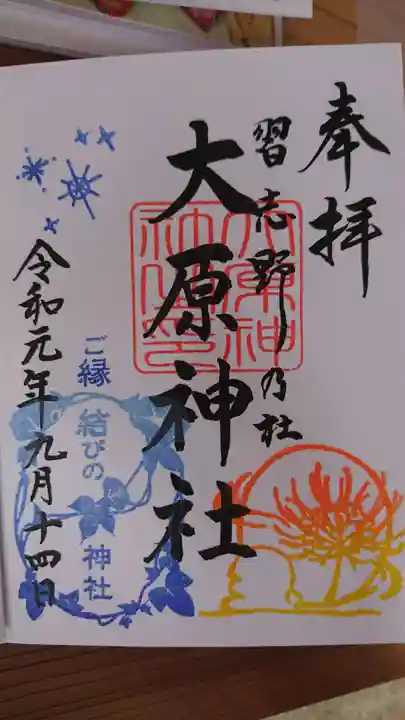 奉拝
習志野乃社
大原神社
大原神
社之印
ご縁結びの神社
令和元年九月十四日